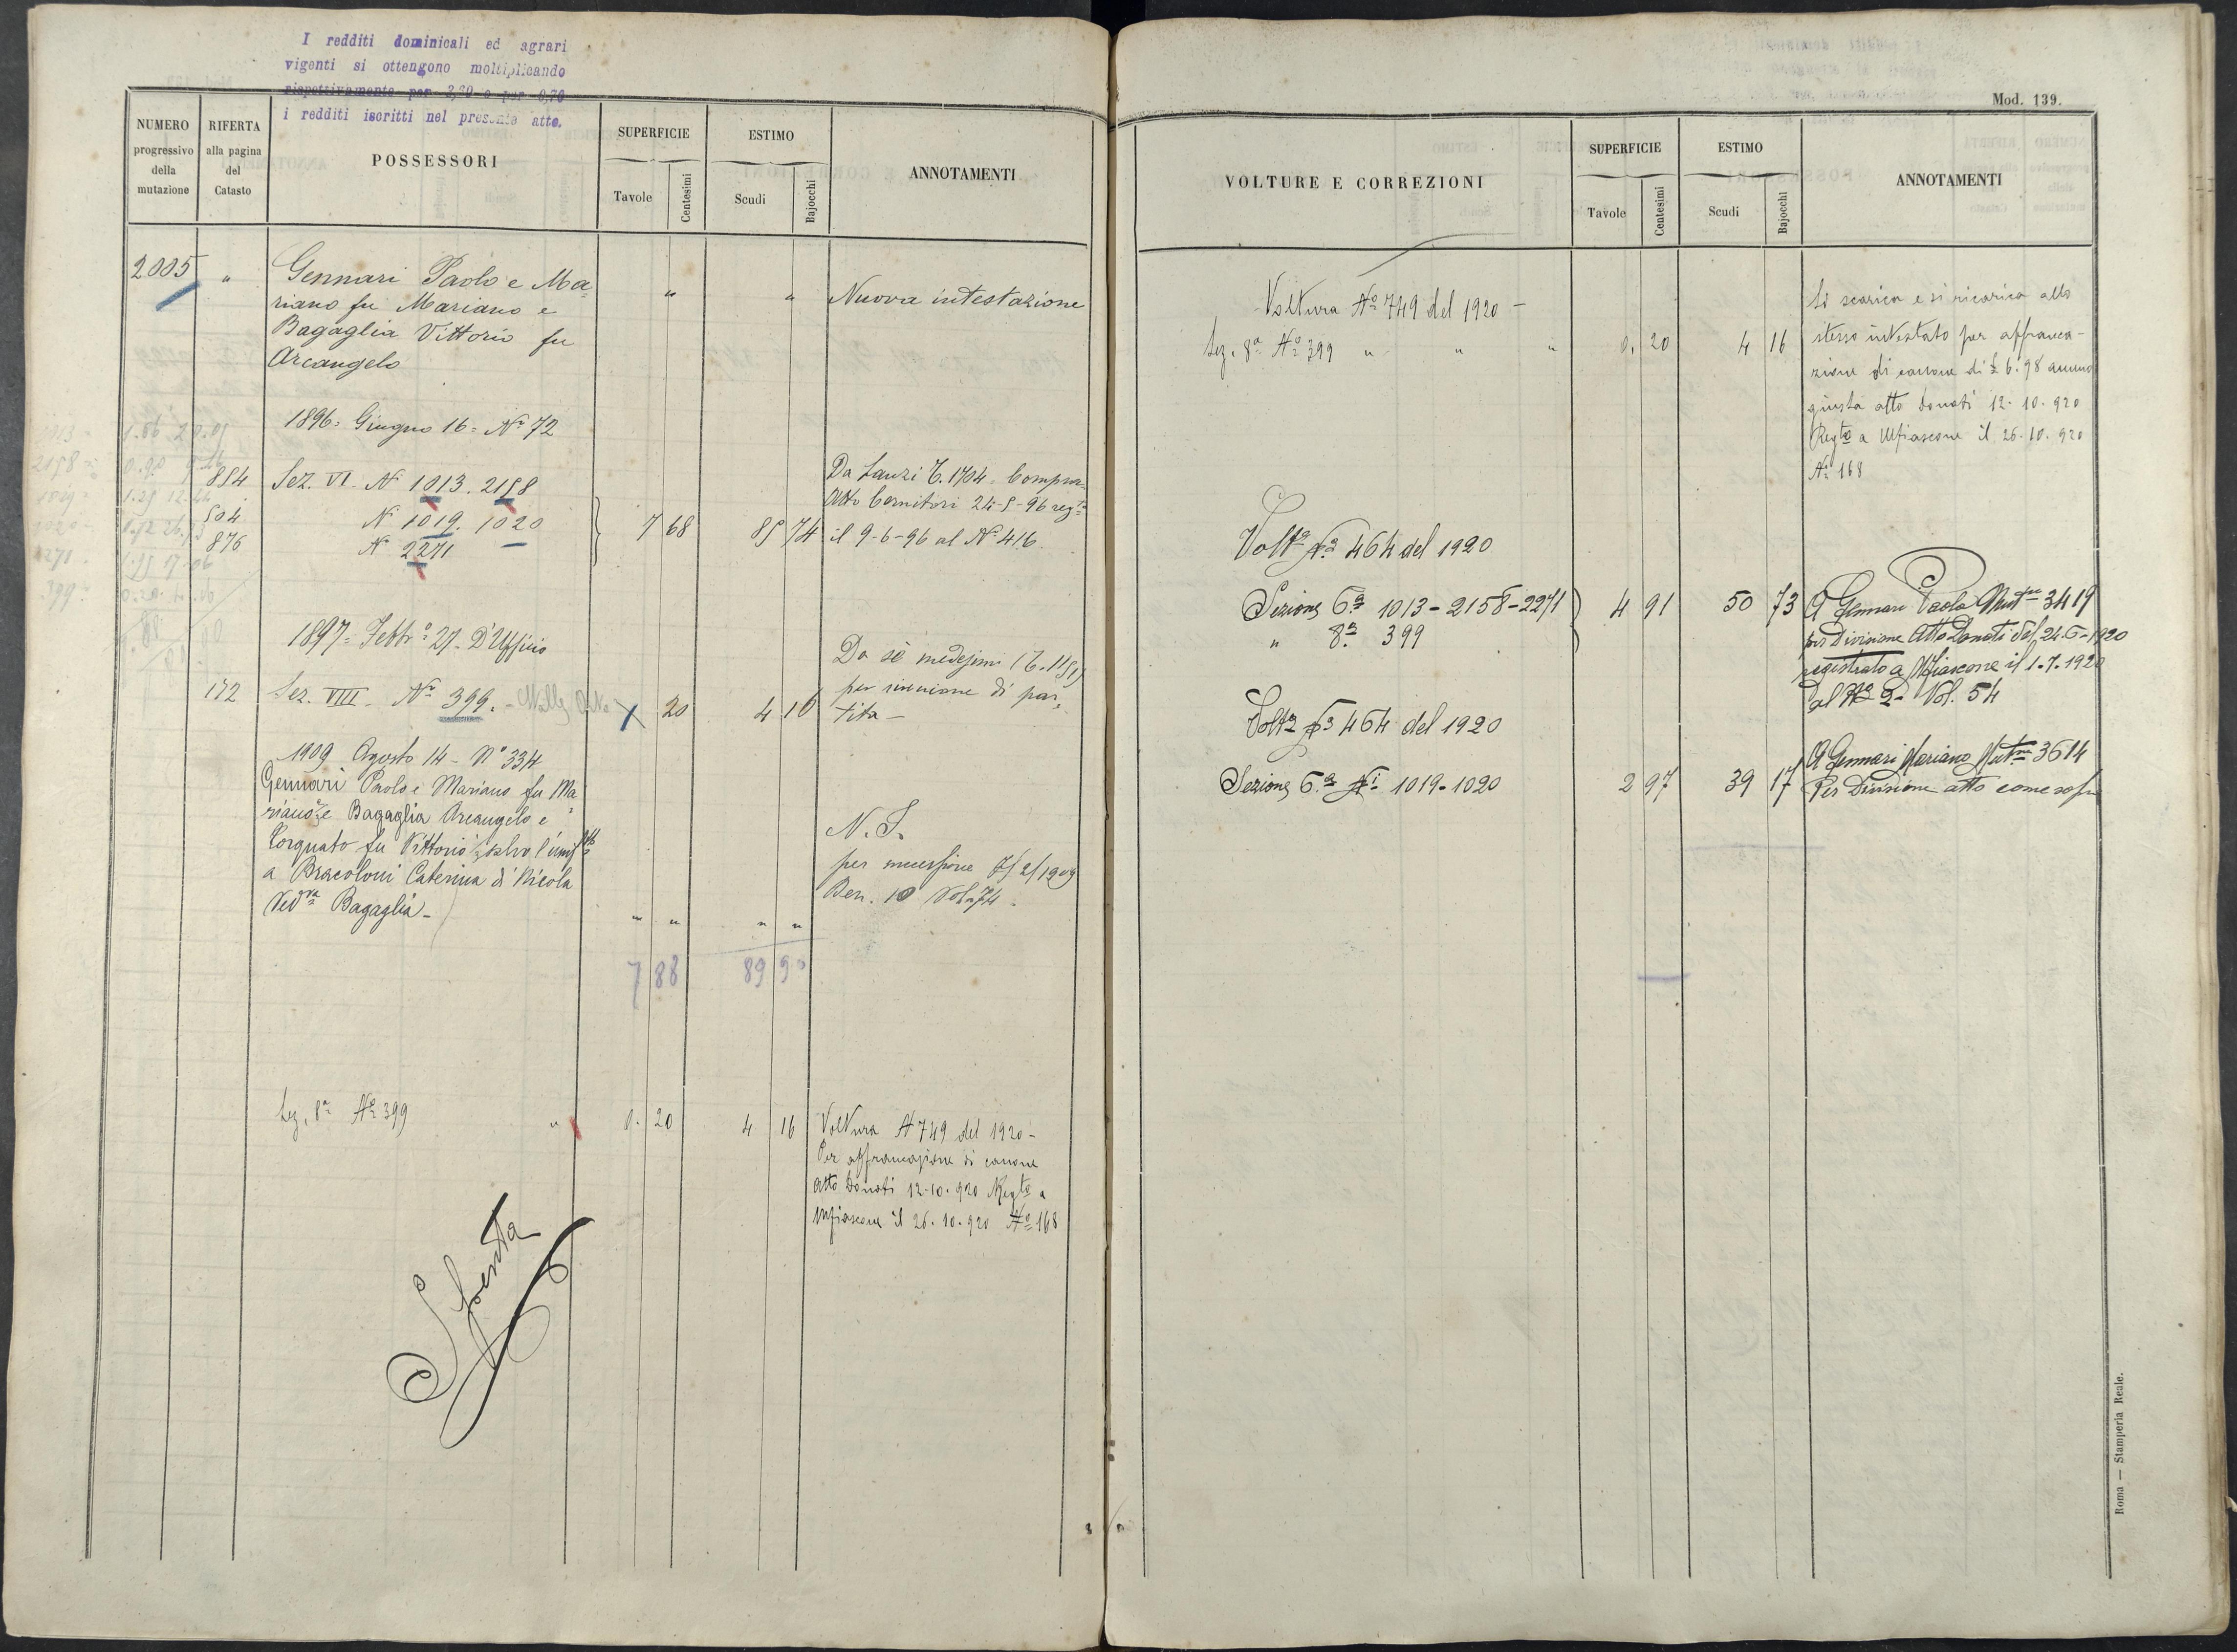 I redditi dominicali ed agrari
vigenti si ottengono moltiplicando
rispettivamente per 3,20 e per 0,70
i redditi iscritti nel presente atto.
NUMERO progressivo della mutazione
RIFERTA alla pagina del Catasto
POSSESSORI
SUPERFICIE
Tavole
Centesimi
ESTIMO
Scudi
Bajocchi
ANNOTAMENTI
2005 " Gennari Paolo e Ma= " " Nuova intestazione
riano fu Mariano e
Bagaglia Vittorio fu
Arcangelo
1896= Giugno 16= No 72
854 Sez. VI. No 1013. 2158
504 N 1019. 1020
876 N 2271
7 68 85 74
Da Lanzi C. 1704. Compra
Atto Cernitori 24-5-96 regto
il 9-6-96 al No 416.
1897= Febbro 27. D'Ufficio
172 Sez. VIII. No 399. 20 4 16
Da sè medesimi
per riunione di par=
tita-
1909 Agosto 14 - No 334
Gennari Paolo e Mariano fu Ma
riano e Bagaglia Arcangelo e
Torquato fu Vittorio salvo l'usuftto
a Bracoloni Caterina di Nicola
Vedva Bagaglia- " " " "
per successione
Den. 10 Vol. 74.
7 88 89 90
Sez. 8a No 399 " 0. 20 4 16
Voltura No 749 del 1920-
Per affrancazione di canone
atto Donati 12-10-920 Regto a
Mfiascone il 26-10-920 No 168
Mod. 139.
VOLTURE E CORREZIONI
SUPERFICIE
Tavole
Centesimi
ESTIMO
Scudi
Bajocchi
ANNOTAMENTI
Voltura No 749 del 1920 -
Sez. 8a No 399 " " " 0. 20 4 16
Si scarica e si ricarica allo
stesso intestato per affranca-
zione di canone di £ 6.98 annuo
giusta atto Donati 12-10-920
Regto a Mfiascone il 26-10-920
No 168
Volta No 464 del 1920
Sezione 6a 1013-2158-2271
" 8a 399
4 91 50 73
A Gennari Paolo Mutne 3419
per Divisione Atto Donati del 24-6-1920
registrato a Mfiascone il 1-7-1920
al No 2- Vol. 54
Volta No 464 del 1920
Sezione 6a Ni 1019-1020 2 97 39 17
A Gennari Mariano Mutne 3614
Per Divisione atto come sopra
Roma — Stamperia Reale.